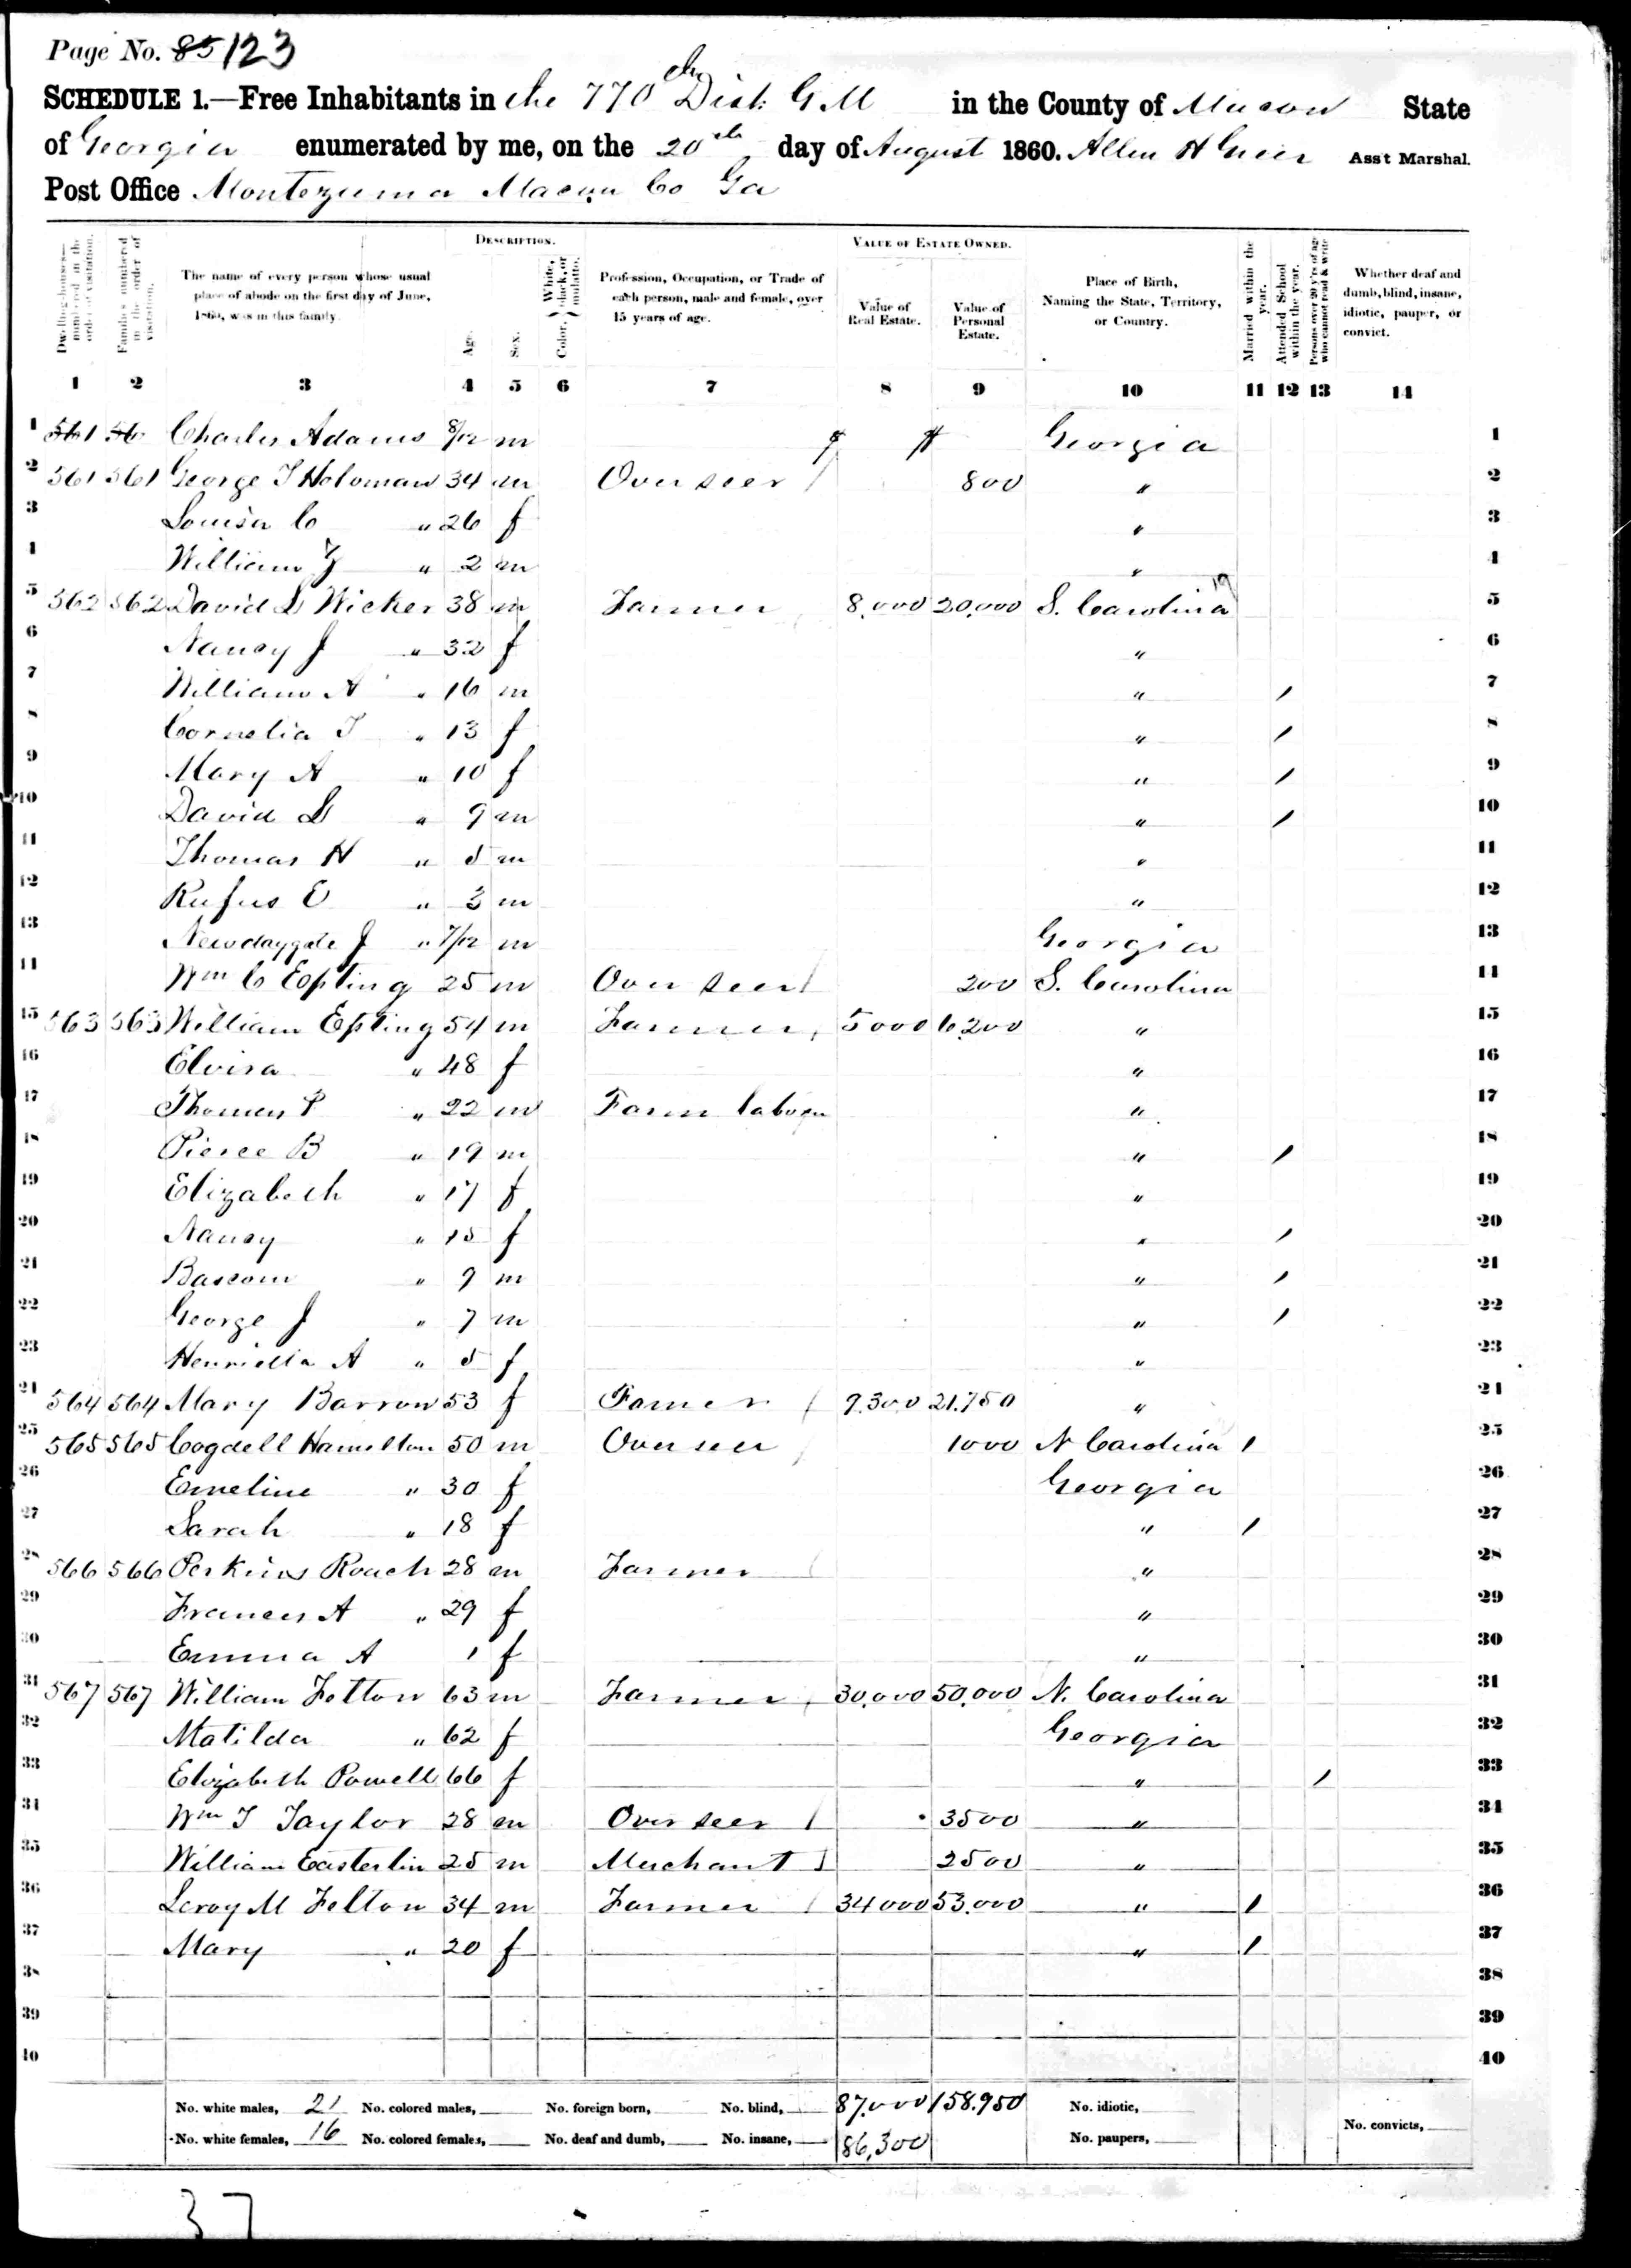 Page No. 85 123
SCHEDULE 1.—Free Inhabitants in the 770th Dist G.M in the County of Macon State
of Georgia enumerated by me, on the 20th day of August 1860. Allen H Greer Ass't Marshal.
Post Office Montezuma Macon Co Ga
DESCRIPTION. VALUE OF ESTATE OWNED.
Dwelling-houses—numbered in the order of visitation.
Families numbered in the order of visitation.
The name of every person whose usual place of abode on the first day of June, 1860, was in this family.
Age.
Sex.
Color, White, black, or mulatto.
Profession, Occupation, or Trade of each person, male and female, over 15 years of age.
Value of Real Estate.
Value of Personal Estate.
Place of Birth, Naming the State, Territory, or Country.
Married within the year.
Attended School within the year.
Persons over 20 y'rs of age who cannot read & write
Whether deaf and dumb, blind, insane, idiotic, pauper, or convict.
1 2 3 4 5 6 7 8 9 10 11 12 13 14
1 561 Charles Adams 8/12 m $ $ Georgia 1
2 561 561 George T Holoman 34 m Overseer / 800 " 2
3 Louisa C " 26 f " 3
4 William " 2 m " 4
5 562 562 David D Wicker 38 m Farmer 8,000 20,000 S. Carolina 5
6 Nancy J " 32 f " 6
7 William A " 16 m " / 7
8 Cornelia T " 13 f " / 8
9 Mary A " 10 f " / 9
10 David D " 9 m " / 10
11 Thomas H " 5 m " 11
12 Rufus E " 3 m " 12
13 Newdaygate J " 7/12 m Georgia 13
14 Wm C Epting 25 m Overseer / 200 S. Carolina 14
15 563 563 William Epting 54 m Farmer 5000 6,200 " 15
16 Elvira " 48 f " 16
17 Thomas P " 22 m Farm labor " 17
18 Pierce B " 19 m " / 18
19 Elizabeth " 17 f " 19
20 Nancy " 15 f " / 20
21 Bascom " 9 m " / 21
22 George J " 7 m " / 22
23 Henrietta A " 5 f " 23
24 564 564 Mary Barrow 53 f Famer / 9.300 21.750 " 24
25 565 565 Cogdell Hamilton 50 m Overseer / 1000 N Carolina / 25
26 Emeline " 30 f Georgia 26
27 Sarah " 18 f " / 27
28 566 566 Perkins Roach 28 m Farmer " 28
29 Frances A " 29 f " 29
30 Emma A 1 f " 30
31 567 567 William Felton 63 m Farmer 30,000 50,000 N. Carolina 31
32 Matilda " 62 f Georgia 32
33 Elizabeth Powell 66 f " / 33
34 Wm T Taylor 28 m Overseer / 3500 " 34
35 William Easterlin 25 m Merchant / 2500 " 35
36 Leroy M Felton 34 m Farmer / 34000 53,000 " / 36
37 Mary " 20 f " / 37
38 38
39 39
40 40
No. white males, 21 No. colored males, No. foreign born, No. blind, 87,000 158.950 No. idiotic,
No. white females, 16 No. colored females, No. deaf and dumb, No. insane, 86,300 No. paupers, No. convicts,
37